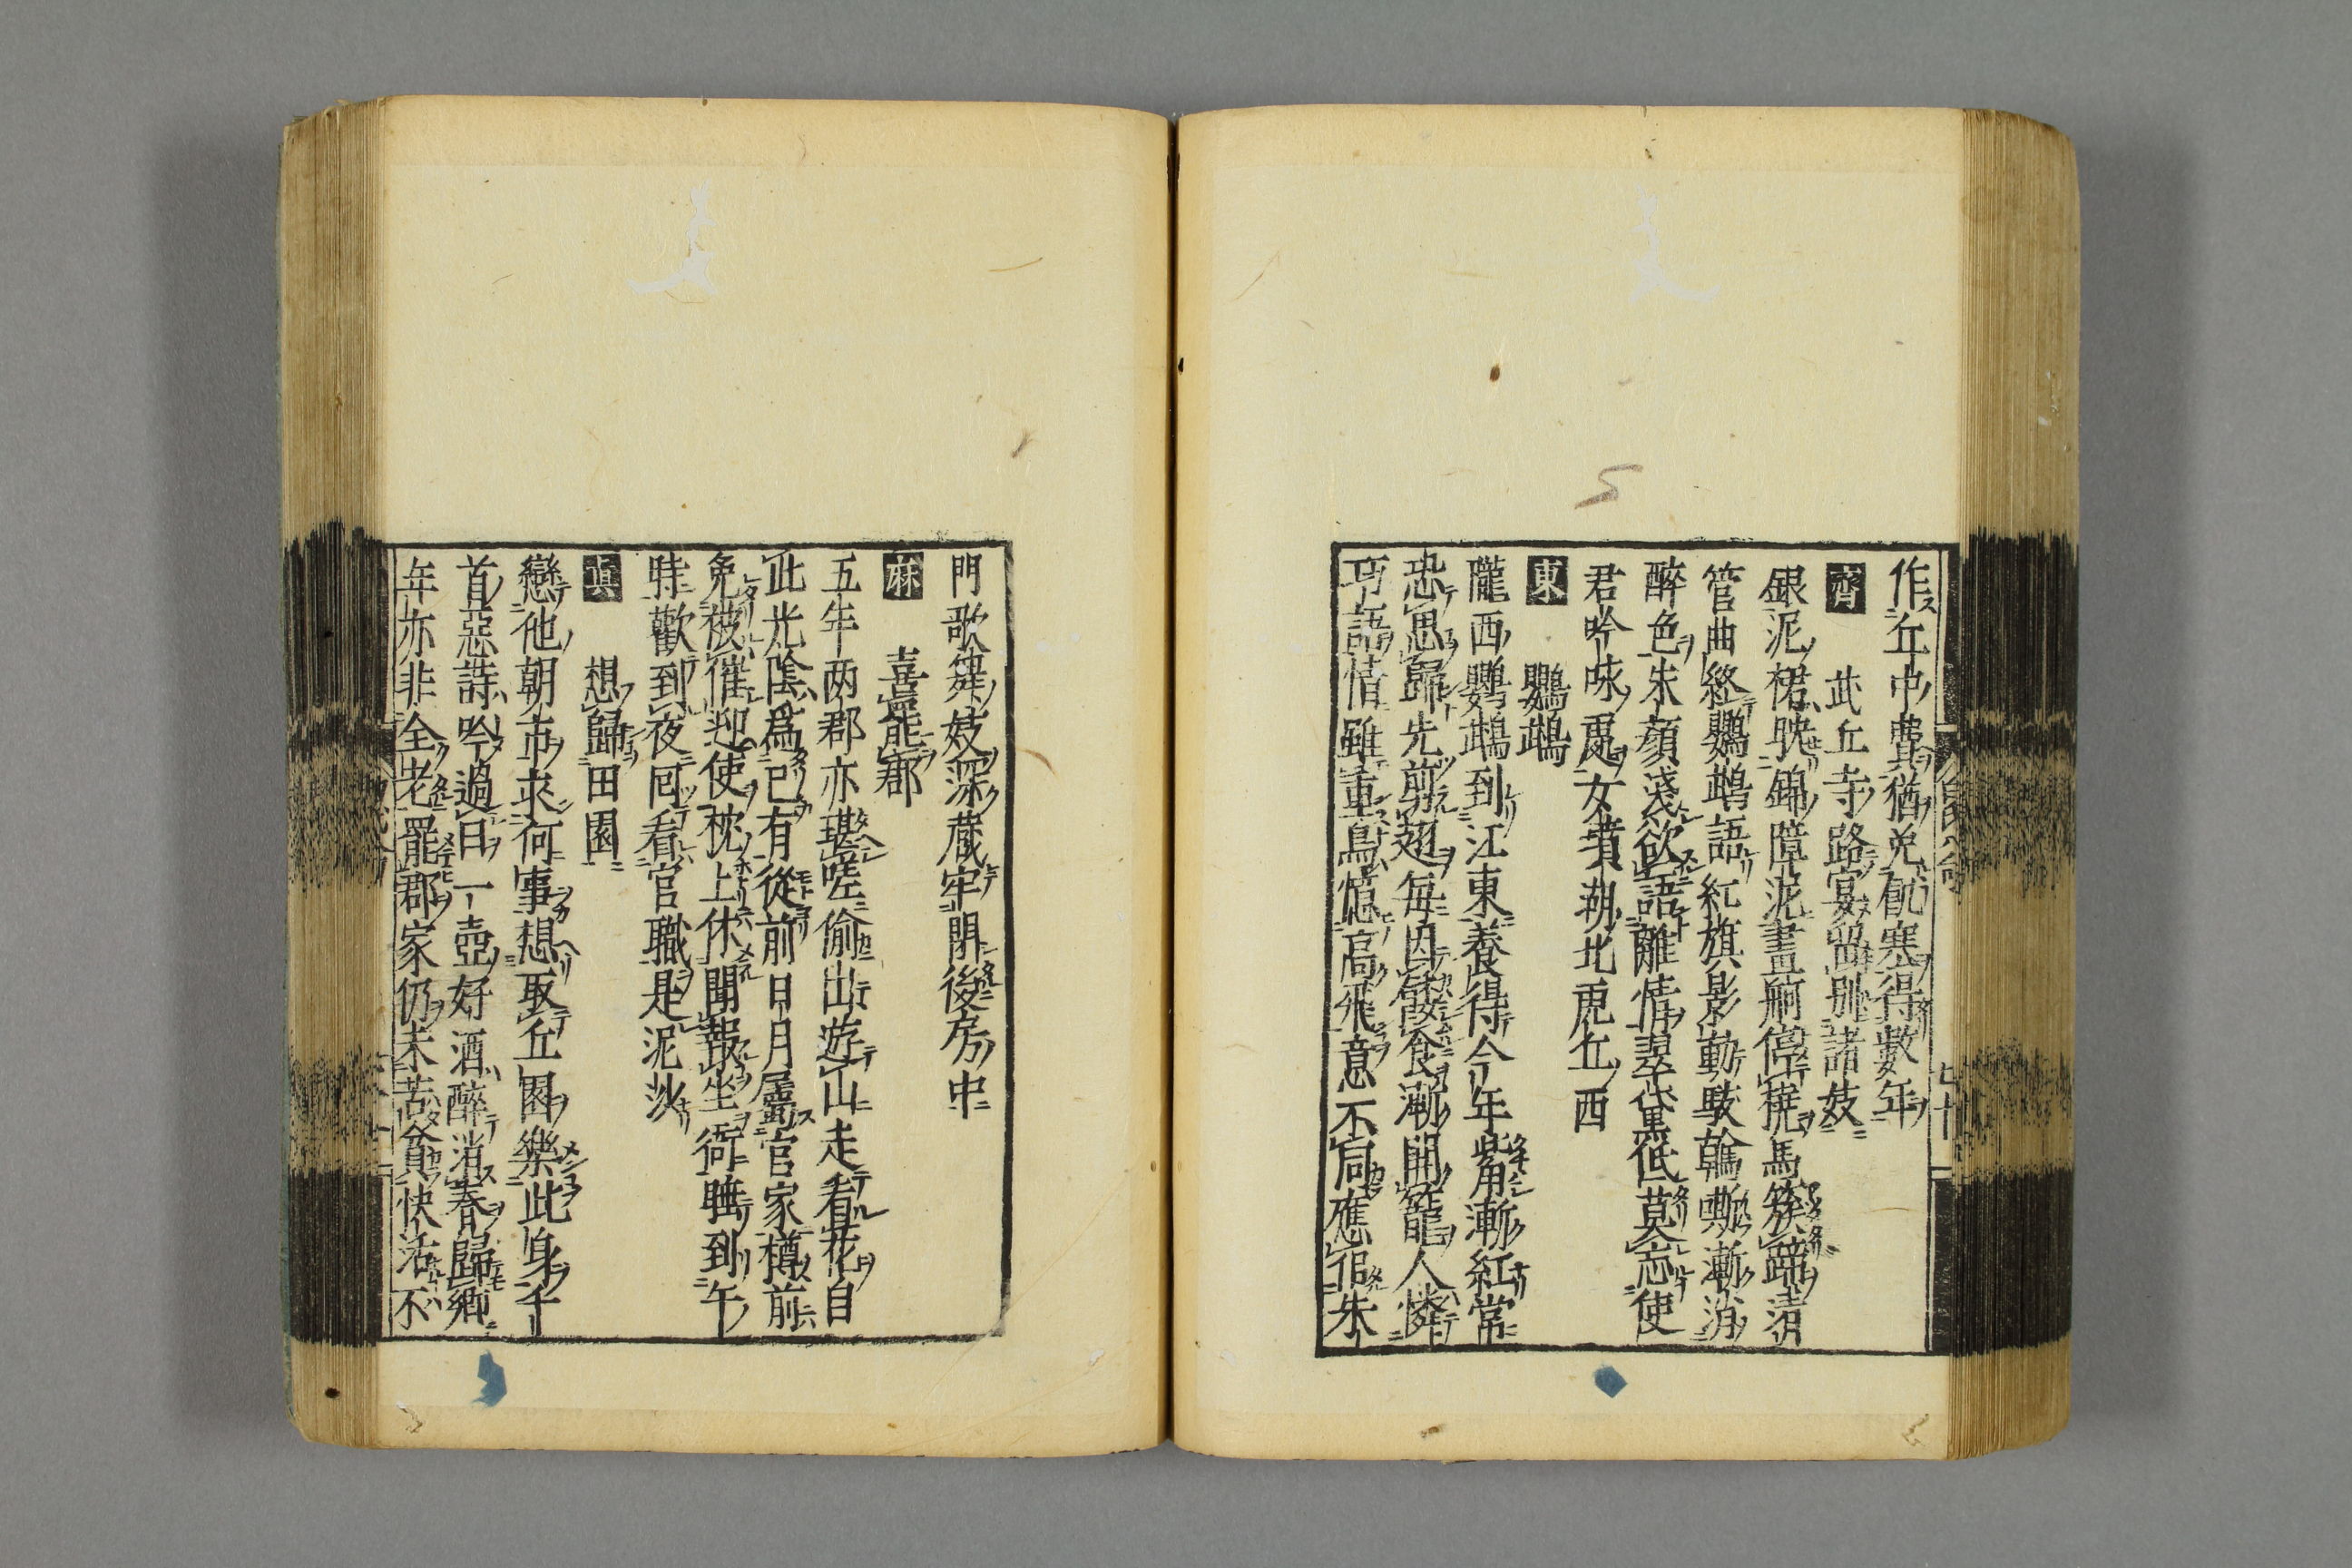 作丘中費猶免飢寒得數年
齊　武丘寺路宴留別諸妓
銀泥裙映錦障泥畫舸停橈馬簇蹄清
管曲終鸚鵡語紅旗影動駮䮧嘶漸消
醉色朱顔淺欲語離情翠黛低莫忘使
君吟咏處女墳湖北虎丘西
東　鸚鵡
隴西鸚鵡到江東養得今年觜漸紅常
恐思歸先剪翅每因餧食漸開籠人憐
巧語情雖重鳥憶高飛意不同應似朱
門歌舞妓深藏牢閉後房中
麻　喜罷郡
五年两郡亦堪嗟偷出遊山走看花自
此光陰爲已有從前日月屬官家樽前
免被催迎使枕上休聞報坐衙睡到午
時歡到夜囘看官職是泥沙
眞　想歸田園
戀他朝市求何事想取丘園樂此身千
首惡詩吟過日一壺好酒醉消春歸鄉
年亦非全老罷郡家仍未苦貧快活不